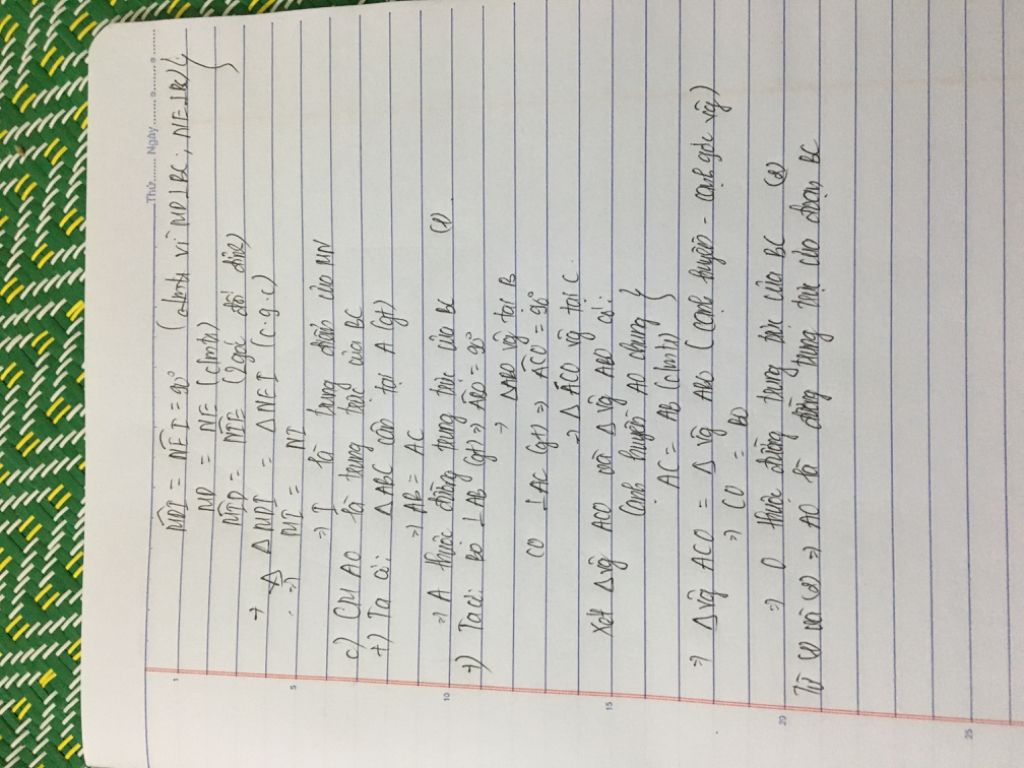 Thứ........ Ngày ........
MDI = NEI = 90° (cmtr vì MD⊥BC, NE⊥BC)
MD = NE (cmtr)
MID = NIE (2 góc đối đỉnh)
→ Δ MDI = Δ NEI (c.g.c)
=) MI = NI
=) I là trung điểm của MN
c) CM AO là trung trực của BC
+) Ta có: ΔABC cân tại A (gt)
=) AB = AC
=) A thuộc đường trung trực của BC (1)
+) Ta có: BO ⊥ AB (gt) => ABO = 90°
→ ΔABO vg tại B
CO ⊥ AC (gt) => ACO = 90°
→ Δ ACO vg tại C.
Xét Δ vg ACO và Δ vg ABO có:
Cạnh huyền AO chung
AC = AB (cmtr)
=) Δ vg ACO = Δ vg ABO (cạnh huyền - cạnh góc vg)
=) CO = BO
=) O thuộc đường trung trực của BC (2)
Từ (1) và (2) => AO là đường trung trực của đoạn BC
1
5
10
15
20
25